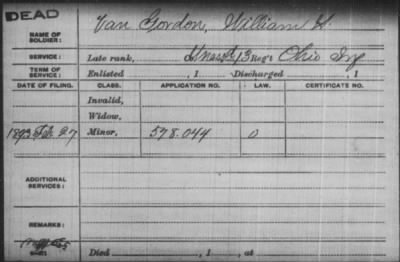 DEAD
NAME OF SOLDIER: Van Gordon, William H.
SERVICE: Late rank, 13 Reg't Ohio Inf
TERM OF SERVICE: Enlisted , 1 Discharged , 1
DATE OF FILING. CLASS. APPLICATION NO. LAW. CERTIFICATE NO.
Invalid,
Widow,
1893 Feb. 27 Minor, 578.044 O
ADDITIONAL SERVICES:
REMARKS:
Died , 1 , at